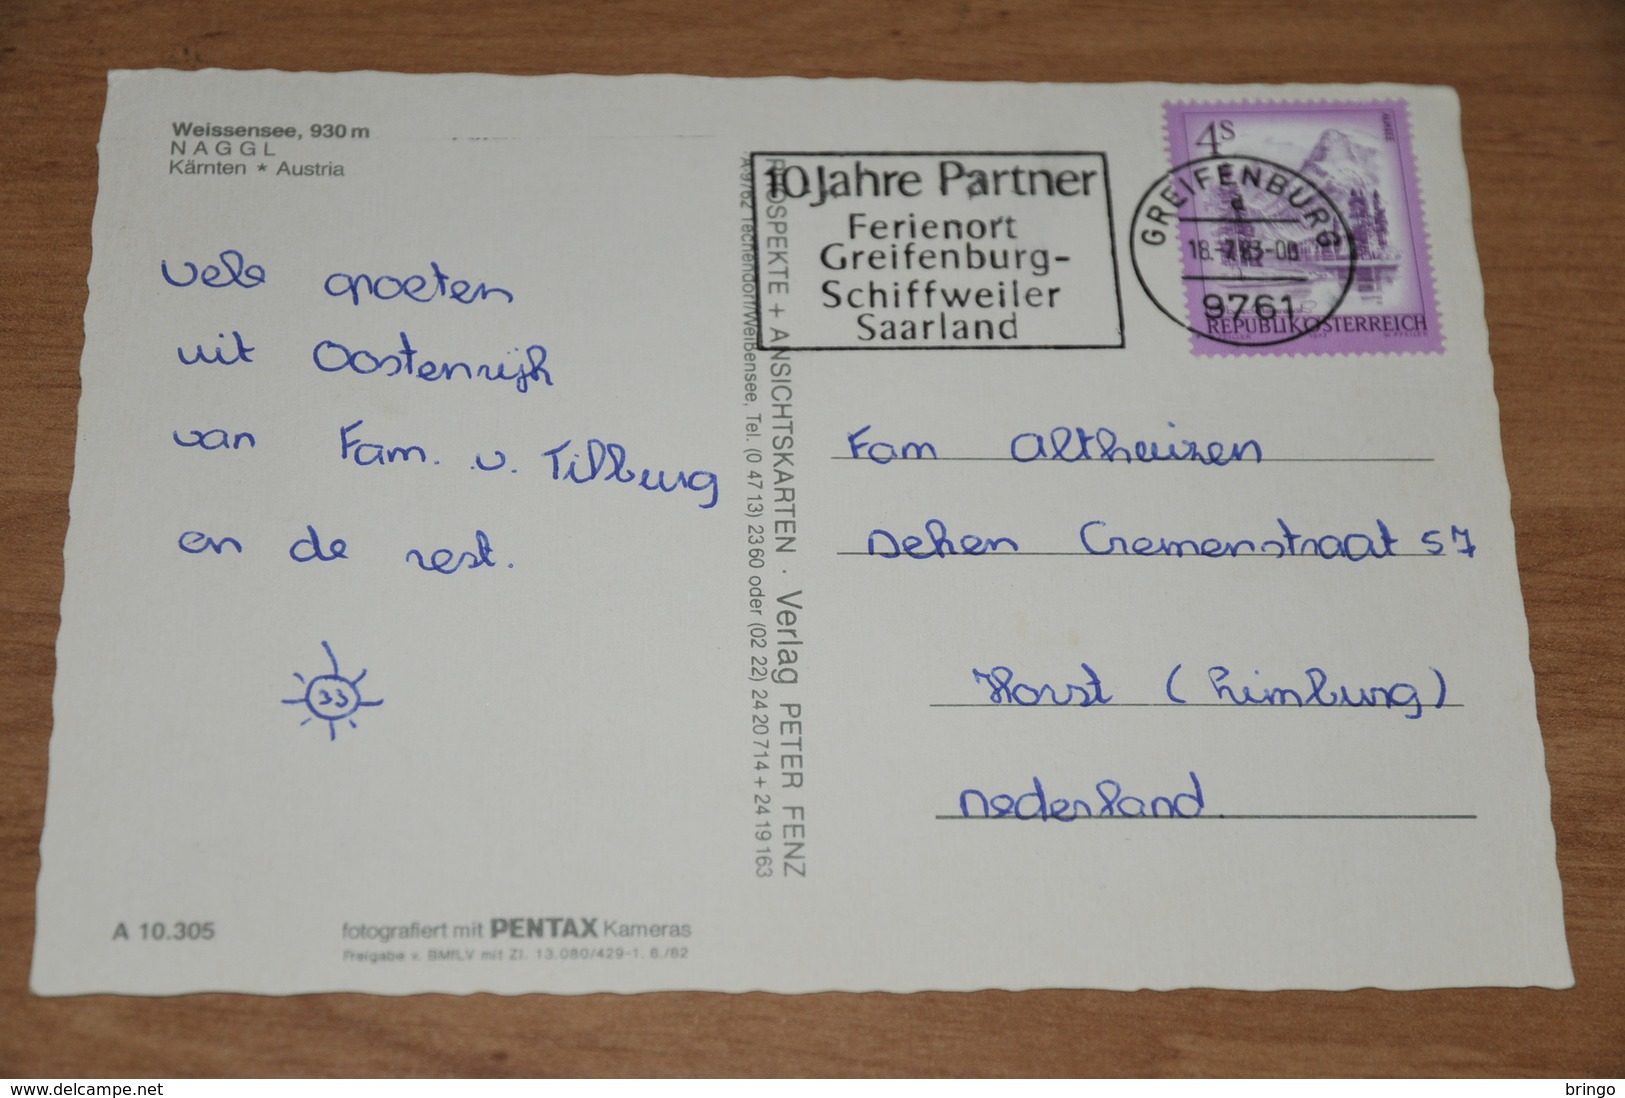 Weissensee, 930 m
NAGGL
Kärnten * Austria
vele groeten
uit Oostenrijk
van Fam. v. Tilburg
en de rest.
33
A 10.305
fotografiert mit PENTAX Kameras
Freigabe v. BMfLV mit Zl. 13.080/429-1. 6./82
PROSPEKTE + ANSICHTSKARTEN · Verlag PETER FENZ
A-9762 Techendorf/Weißensee, Tel. (0 47 13) 23 60 oder (02 22) 24 20 714 + 24 19 163
10 Jahre Partner
Ferienort
Greifenburg-
Schiffweiler
Saarland
4S
ALMSEE
GREIFENBURG
a
18.-7.83-08
9761
REPUBLIK ÖSTERREICH
Fam Altheizen
Deken Cremenstraat 57
Horst (Limburg)
Nederland.
www.delcampe.net
bringo